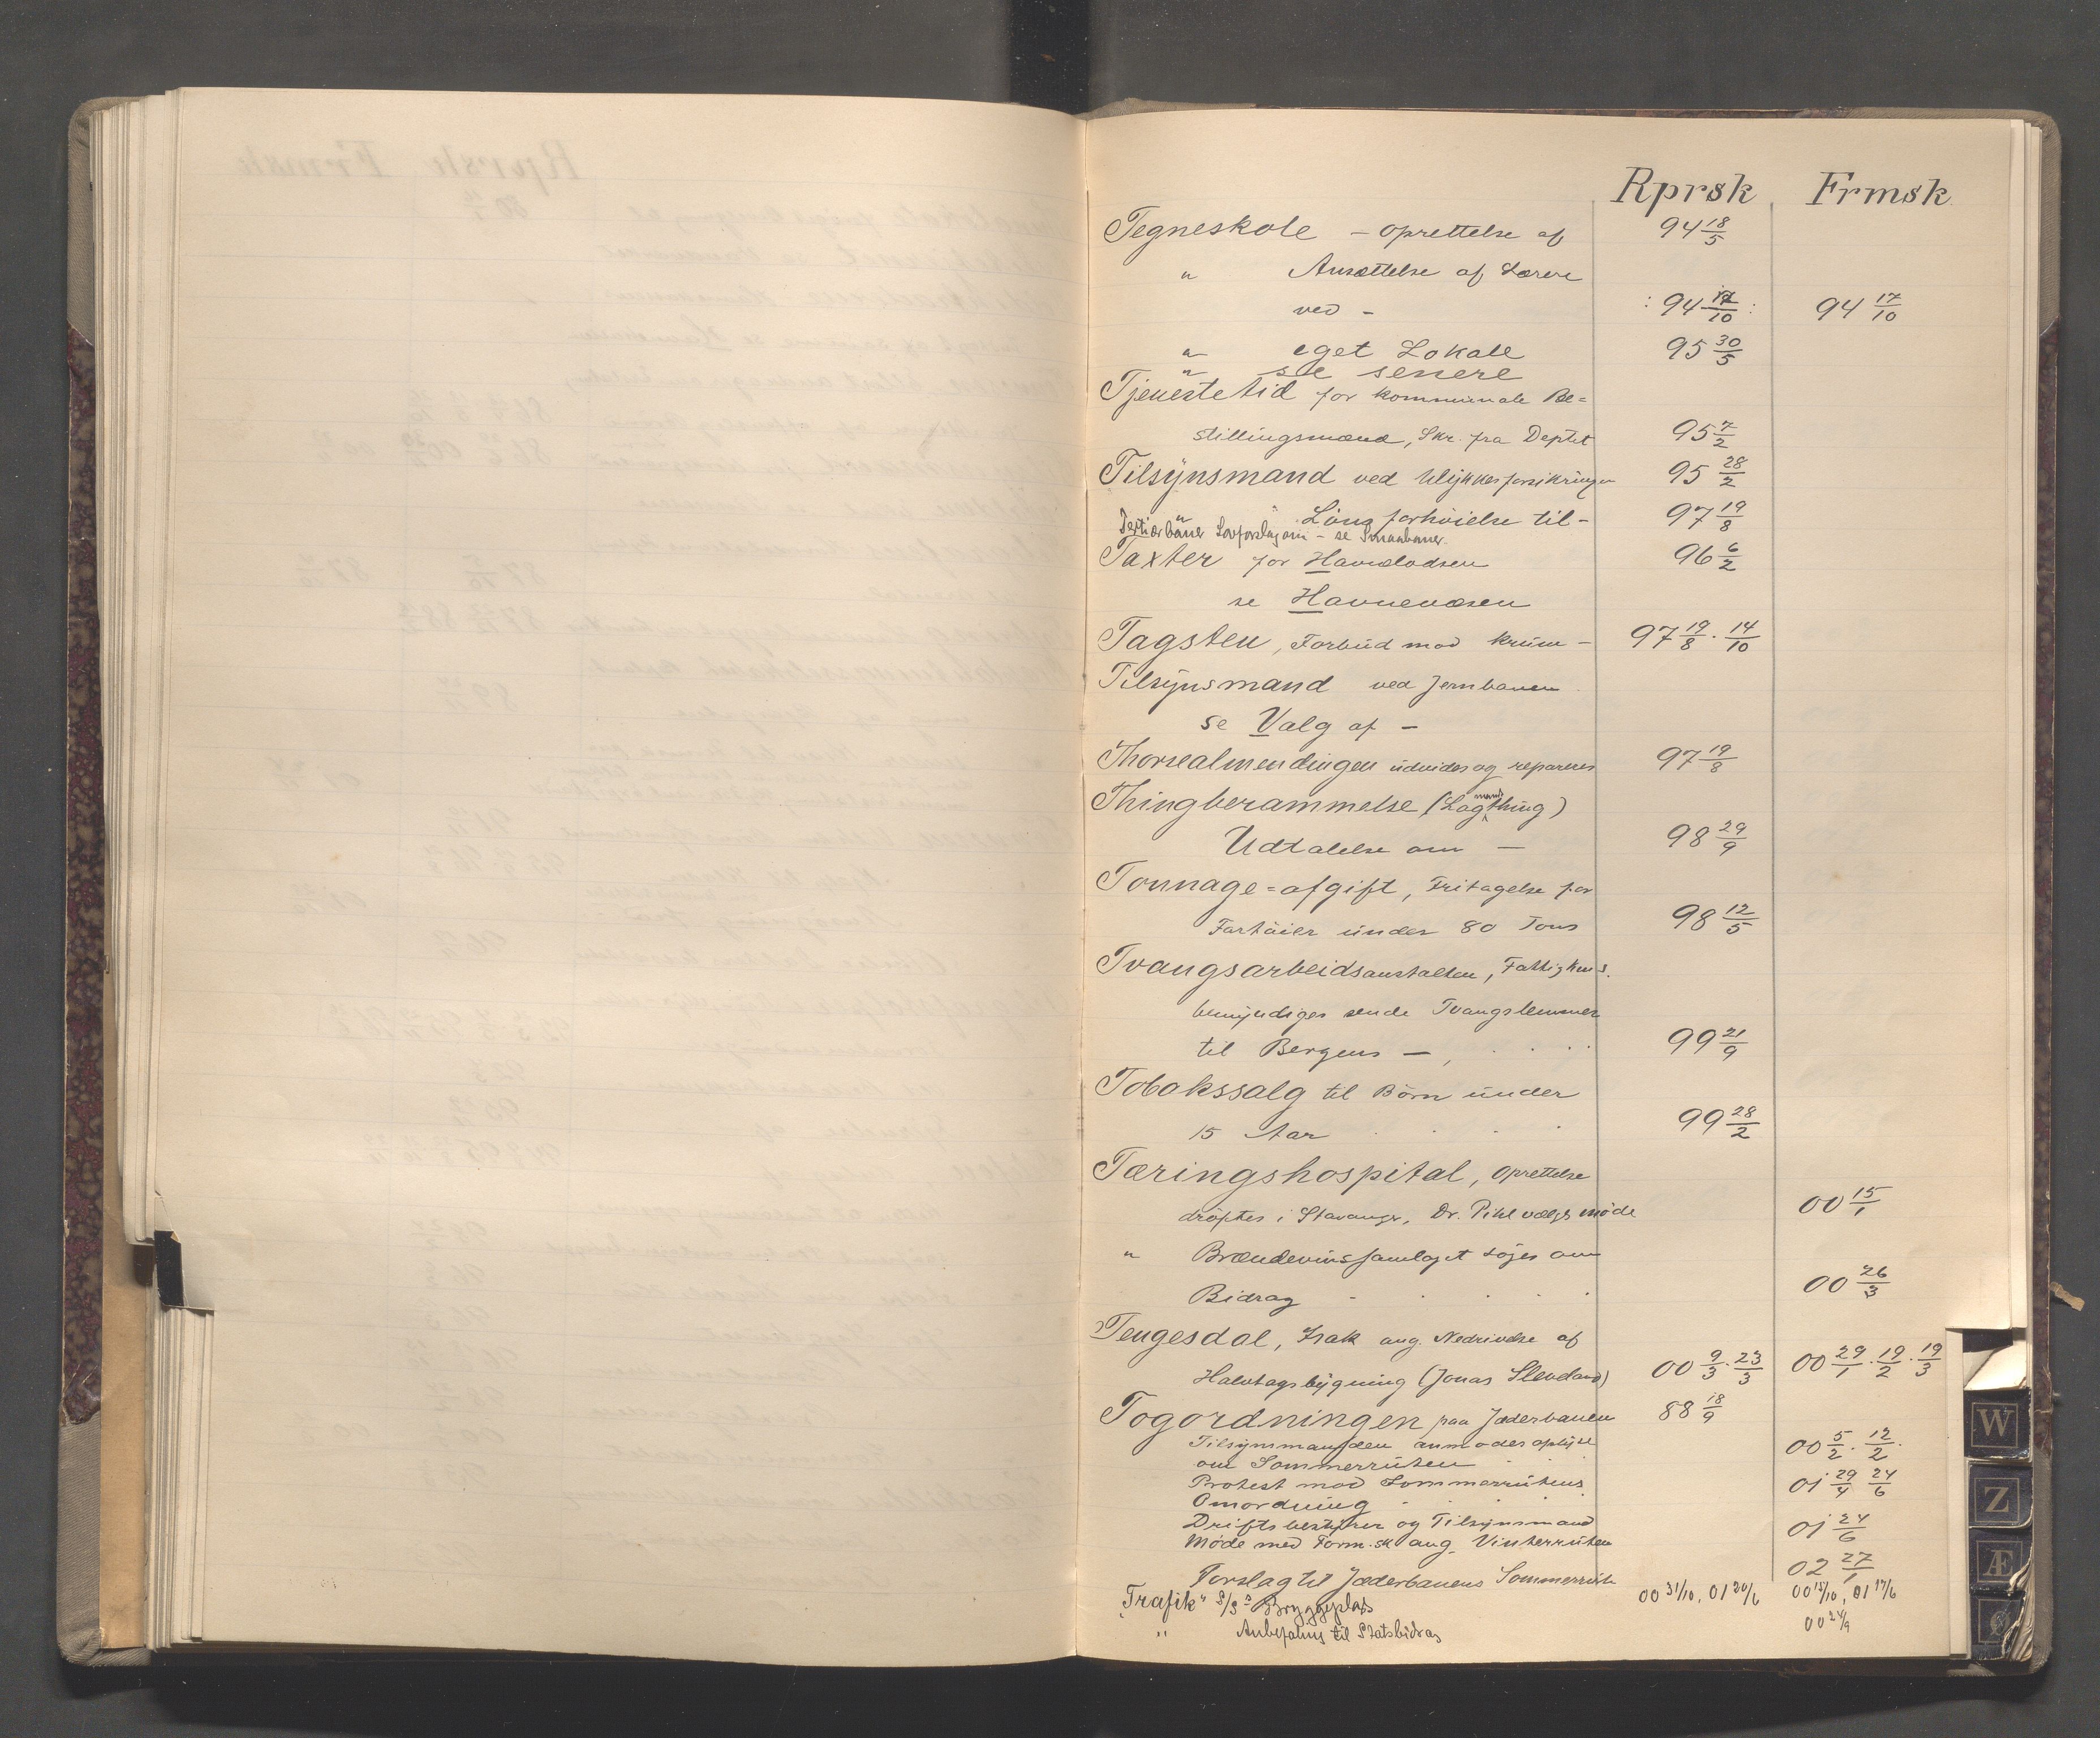 Rprsk Frmsk
Tegneskole – oprettelse af 94 18/5
" Ansættelse af Lærere
ved – : 94 17/10 : 94 17/10
" eget Lokale 95 30/5
" se senere
Tjenestetid for kommunale Be=
stillingsmænd, Skr. fra Deptet 95 7/2
Tilsynsmand ved Ulykkesforsikringen 95 28/2
" Lønsforhøielse til – 97 19/8
Tertiærbaner Lovforslag om – se Smaabaner.
Taxter for Havnelodsen 96 6/2
se Havnevæsen
Tagsten, Forbud mod krum – 97 19/8 . 14/10
Tilsynsmand ved Jernbanen
se Valg af –
Thorsealmendingen udvides og repareres 97 19/8
Thingberammelse (Lagmandsthing)
Udtalelse om – 98 29/9
Tonnage=afgift, Fritagelse for
Fartøier under 80 Tons 98 12/5
Tvangsarbeidsanstalten, Fattigkms.
bemyndiges sende Tvangslemmer
til Bergens –, . . . 99 21/9
Tobakssalg til Børn under
15 Aar . . . 99 28/2
Tæringshospital, oprettelse
drøftes i Stavanger, Dr. Pihl vælges møde 00 15/1
" Brændevinssamlaget søges om
Bidrag . . . . . 00 26/3
Tengesdal, Isak ang. Nedrivelse af
Halvtagsbygning (Jonas Sleveland) 00 9/3 . 23/3 00 29/1 . 19/2 . 19/3
Togordningen paa Jæderbanen 88 18/9
Tilsynsmanden anmodes oplyse 00 5/2 . 12/2.
om Sommerruten
Protest mod Sommerrutens 01 29/4 24/6
Omordning . . . .
Driftsbestyrer og Tilsynsmand 01 24/6
Møde med Form.sk ang. Vinterruten
Forslag til Jæderbanens Sommerrute 02 27/1
"Trafik" S/S s Bryggeplads 00 31/10, 01 20/6 00 15/10, 01 17/6
" Anbefaling til Statsbidrag 00 24/9
W
Z
Æ
Ø